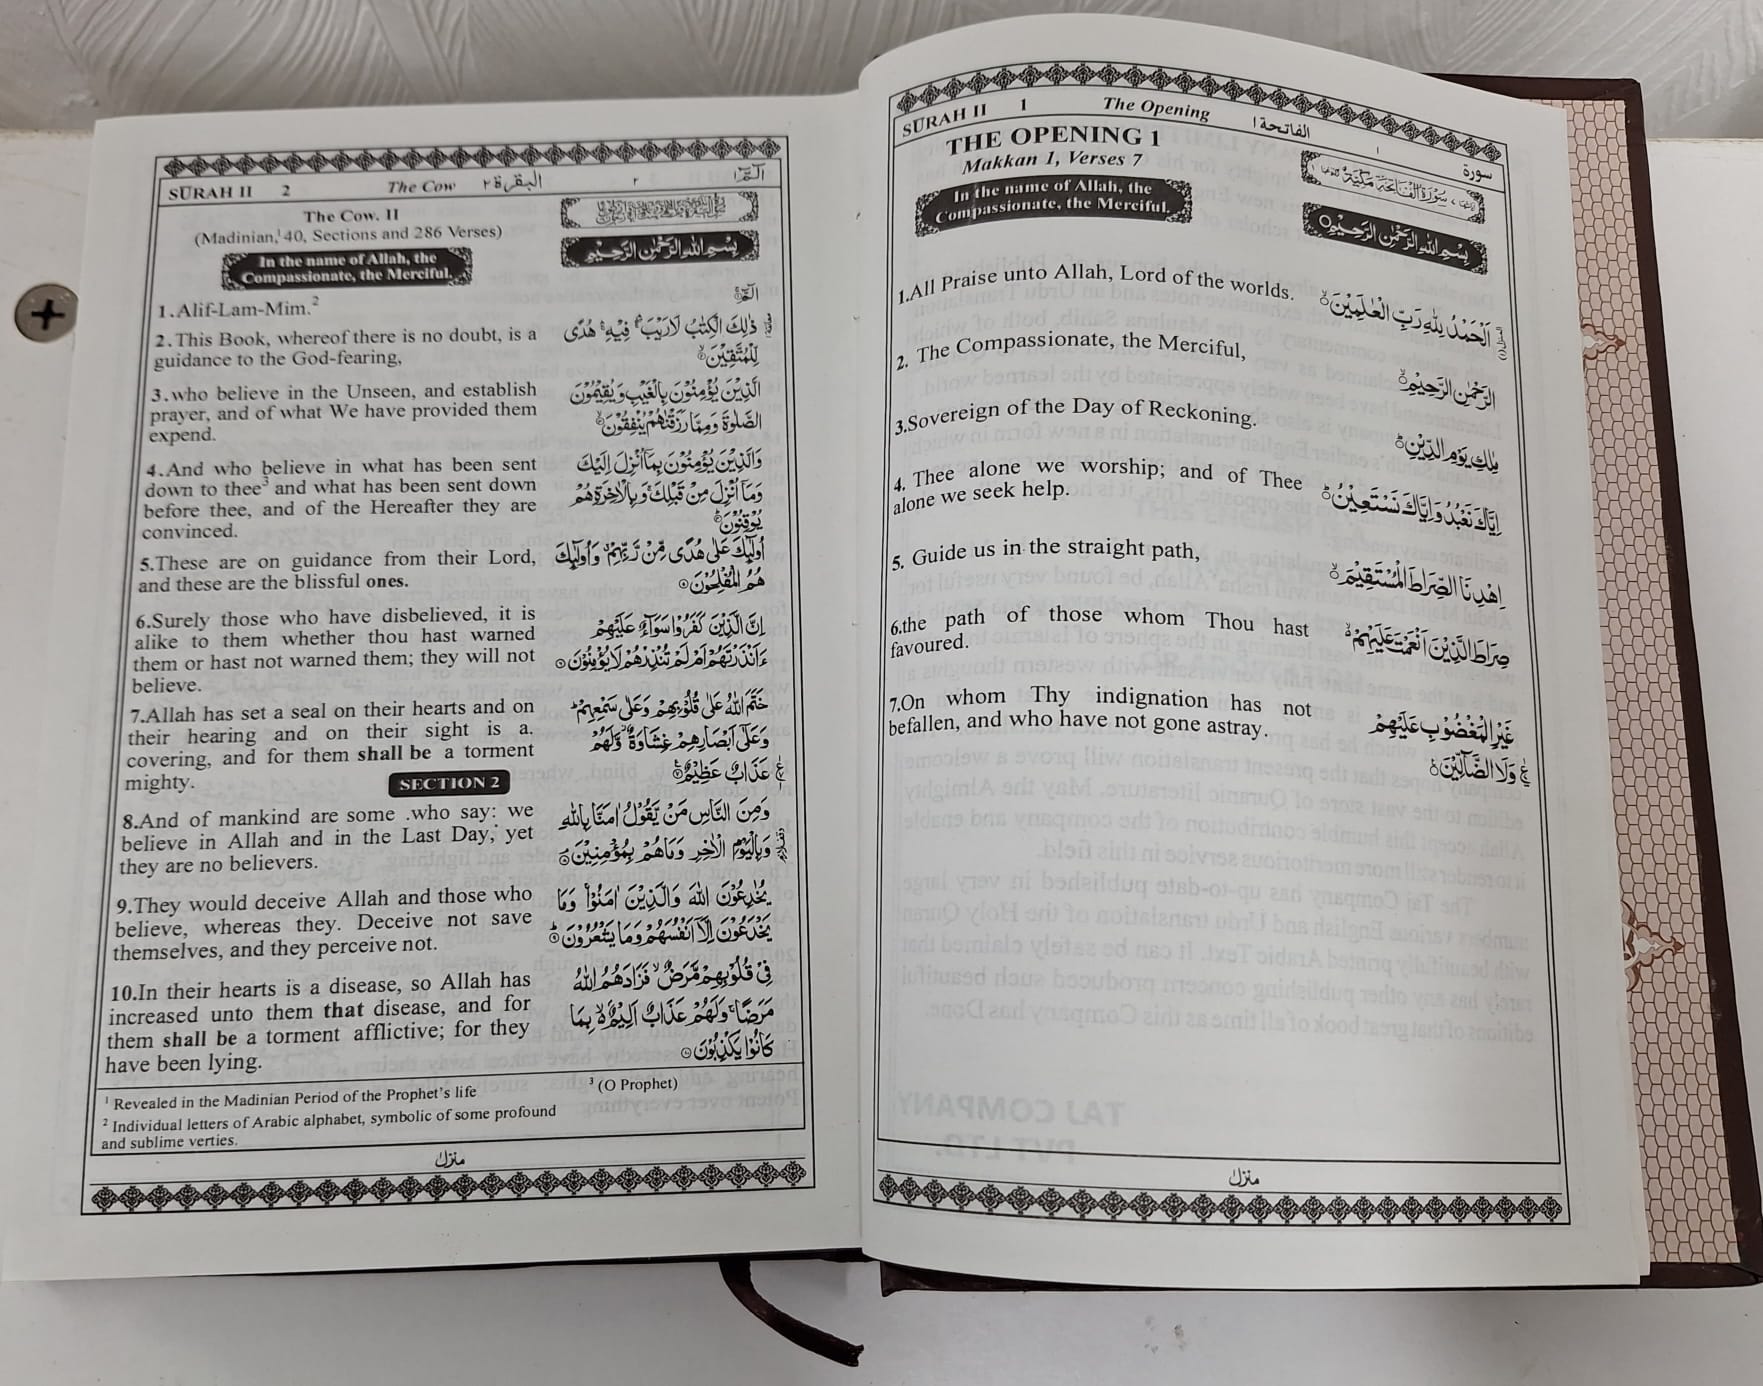 SŪRAH II 1 The Opening الفاتحة ١ ١ سورة
THE OPENING 1
Makkan 1, Verses 7
In the name of Allah, the
Compassionate, the Merciful.
بِسْمِ اللهِ الرَّحْمٰنِ الرَّحِيْمِ
1.All Praise unto Allah, Lord of the worlds.
اَلْحَمْدُ لِلّٰهِ رَبِّ الْعٰلَمِيْنَ
2. The Compassionate, the Merciful,
الرَّحْمٰنِ الرَّحِيْمِ
3.Sovereign of the Day of Reckoning.
مٰلِكِ يَوْمِ الدِّيْنِ
4. Thee alone we worship; and of Thee
alone we seek help.
اِيَّاكَ نَعْبُدُ وَاِيَّاكَ نَسْتَعِيْنُ
5. Guide us in the straight path,
اِهْدِنَا الصِّرَاطَ الْمُسْتَقِيْمَ
6.the path of those whom Thou hast
favoured.
صِرَاطَ الَّذِيْنَ اَنْعَمْتَ عَلَيْهِمْ
7.On whom Thy indignation has not
befallen, and who have not gone astray.
غَيْرِ الْمَغْضُوْبِ عَلَيْهِمْ
وَلَا الضَّآلِّيْنَ
منزل
SŪRAH II 2 The Cow البقرة ٢ ٢ الٓمّٓ ١
The Cow. II
(Madinian,¹ 40, Sections and 286 Verses)
In the name of Allah, the
Compassionate, the Merciful.
بِسْمِ اللهِ الرَّحْمٰنِ الرَّحِيْمِ
1.Alif-Lam-Mim.²
الٓمّٓ
2.This Book, whereof there is no doubt, is a
guidance to the God-fearing,
ذٰلِكَ الْكِتٰبُ لَا رَيْبَ فِيْهِ هُدًى
لِّلْمُتَّقِيْنَ
3.who believe in the Unseen, and establish
prayer, and of what We have provided them
expend.
الَّذِيْنَ يُؤْمِنُوْنَ بِالْغَيْبِ وَيُقِيْمُوْنَ
الصَّلٰوةَ وَمِمَّا رَزَقْنٰهُمْ يُنْفِقُوْنَ
4.And who believe in what has been sent
down to thee³ and what has been sent down
before thee, and of the Hereafter they are
convinced.
وَالَّذِيْنَ يُؤْمِنُوْنَ بِمَآ اُنْزِلَ اِلَيْكَ
وَمَآ اُنْزِلَ مِنْ قَبْلِكَ وَبِالْاٰخِرَةِ هُمْ
يُوْقِنُوْنَ
5.These are on guidance from their Lord,
and these are the blissful ones.
اُولٰٓئِكَ عَلٰى هُدًى مِّنْ رَّبِّهِمْ وَاُولٰٓئِكَ
هُمُ الْمُفْلِحُوْنَ
6.Surely those who have disbelieved, it is
alike to them whether thou hast warned
them or hast not warned them; they will not
believe.
اِنَّ الَّذِيْنَ كَفَرُوْا سَوَآءٌ عَلَيْهِمْ
ءَاَنْذَرْتَهُمْ اَمْ لَمْ تُنْذِرْهُمْ لَا يُؤْمِنُوْنَ
7.Allah has set a seal on their hearts and on
their hearing and on their sight is a.
covering, and for them shall be a torment
mighty.
خَتَمَ اللهُ عَلٰى قُلُوْبِهِمْ وَعَلٰى سَمْعِهِمْ
وَعَلٰٓى اَبْصَارِهِمْ غِشَاوَةٌ وَّلَهُمْ
عَذَابٌ عَظِيْمٌ
SECTION 2
8.And of mankind are some .who say: we
believe in Allah and in the Last Day; yet
they are no believers.
وَمِنَ النَّاسِ مَنْ يَّقُوْلُ اٰمَنَّا بِاللهِ
وَبِالْيَوْمِ الْاٰخِرِ وَمَا هُمْ بِمُؤْمِنِيْنَ
9.They would deceive Allah and those who
believe, whereas they. Deceive not save
themselves, and they perceive not.
يُخٰدِعُوْنَ اللهَ وَالَّذِيْنَ اٰمَنُوْا وَمَا
يَخْدَعُوْنَ اِلَّآ اَنْفُسَهُمْ وَمَا يَشْعُرُوْنَ
10.In their hearts is a disease, so Allah has
increased unto them that disease, and for
them shall be a torment afflictive; for they
have been lying.
فِيْ قُلُوْبِهِمْ مَّرَضٌ فَزَادَهُمُ اللهُ
مَرَضًا وَلَهُمْ عَذَابٌ اَلِيْمٌ بِمَا
كَانُوْا يَكْذِبُوْنَ
¹ Revealed in the Madinian Period of the Prophet's life
³ (O Prophet)
² Individual letters of Arabic alphabet, symbolic of some profound
and sublime verties.
منزل